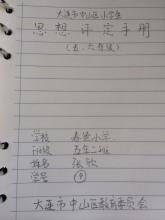 大连市中山区小学生
思想评定手册
(五、六年级)
学校 春蕾小学
班级 五年二班
姓名 张欣
学号 ⑨
大连市中山区教育委员会